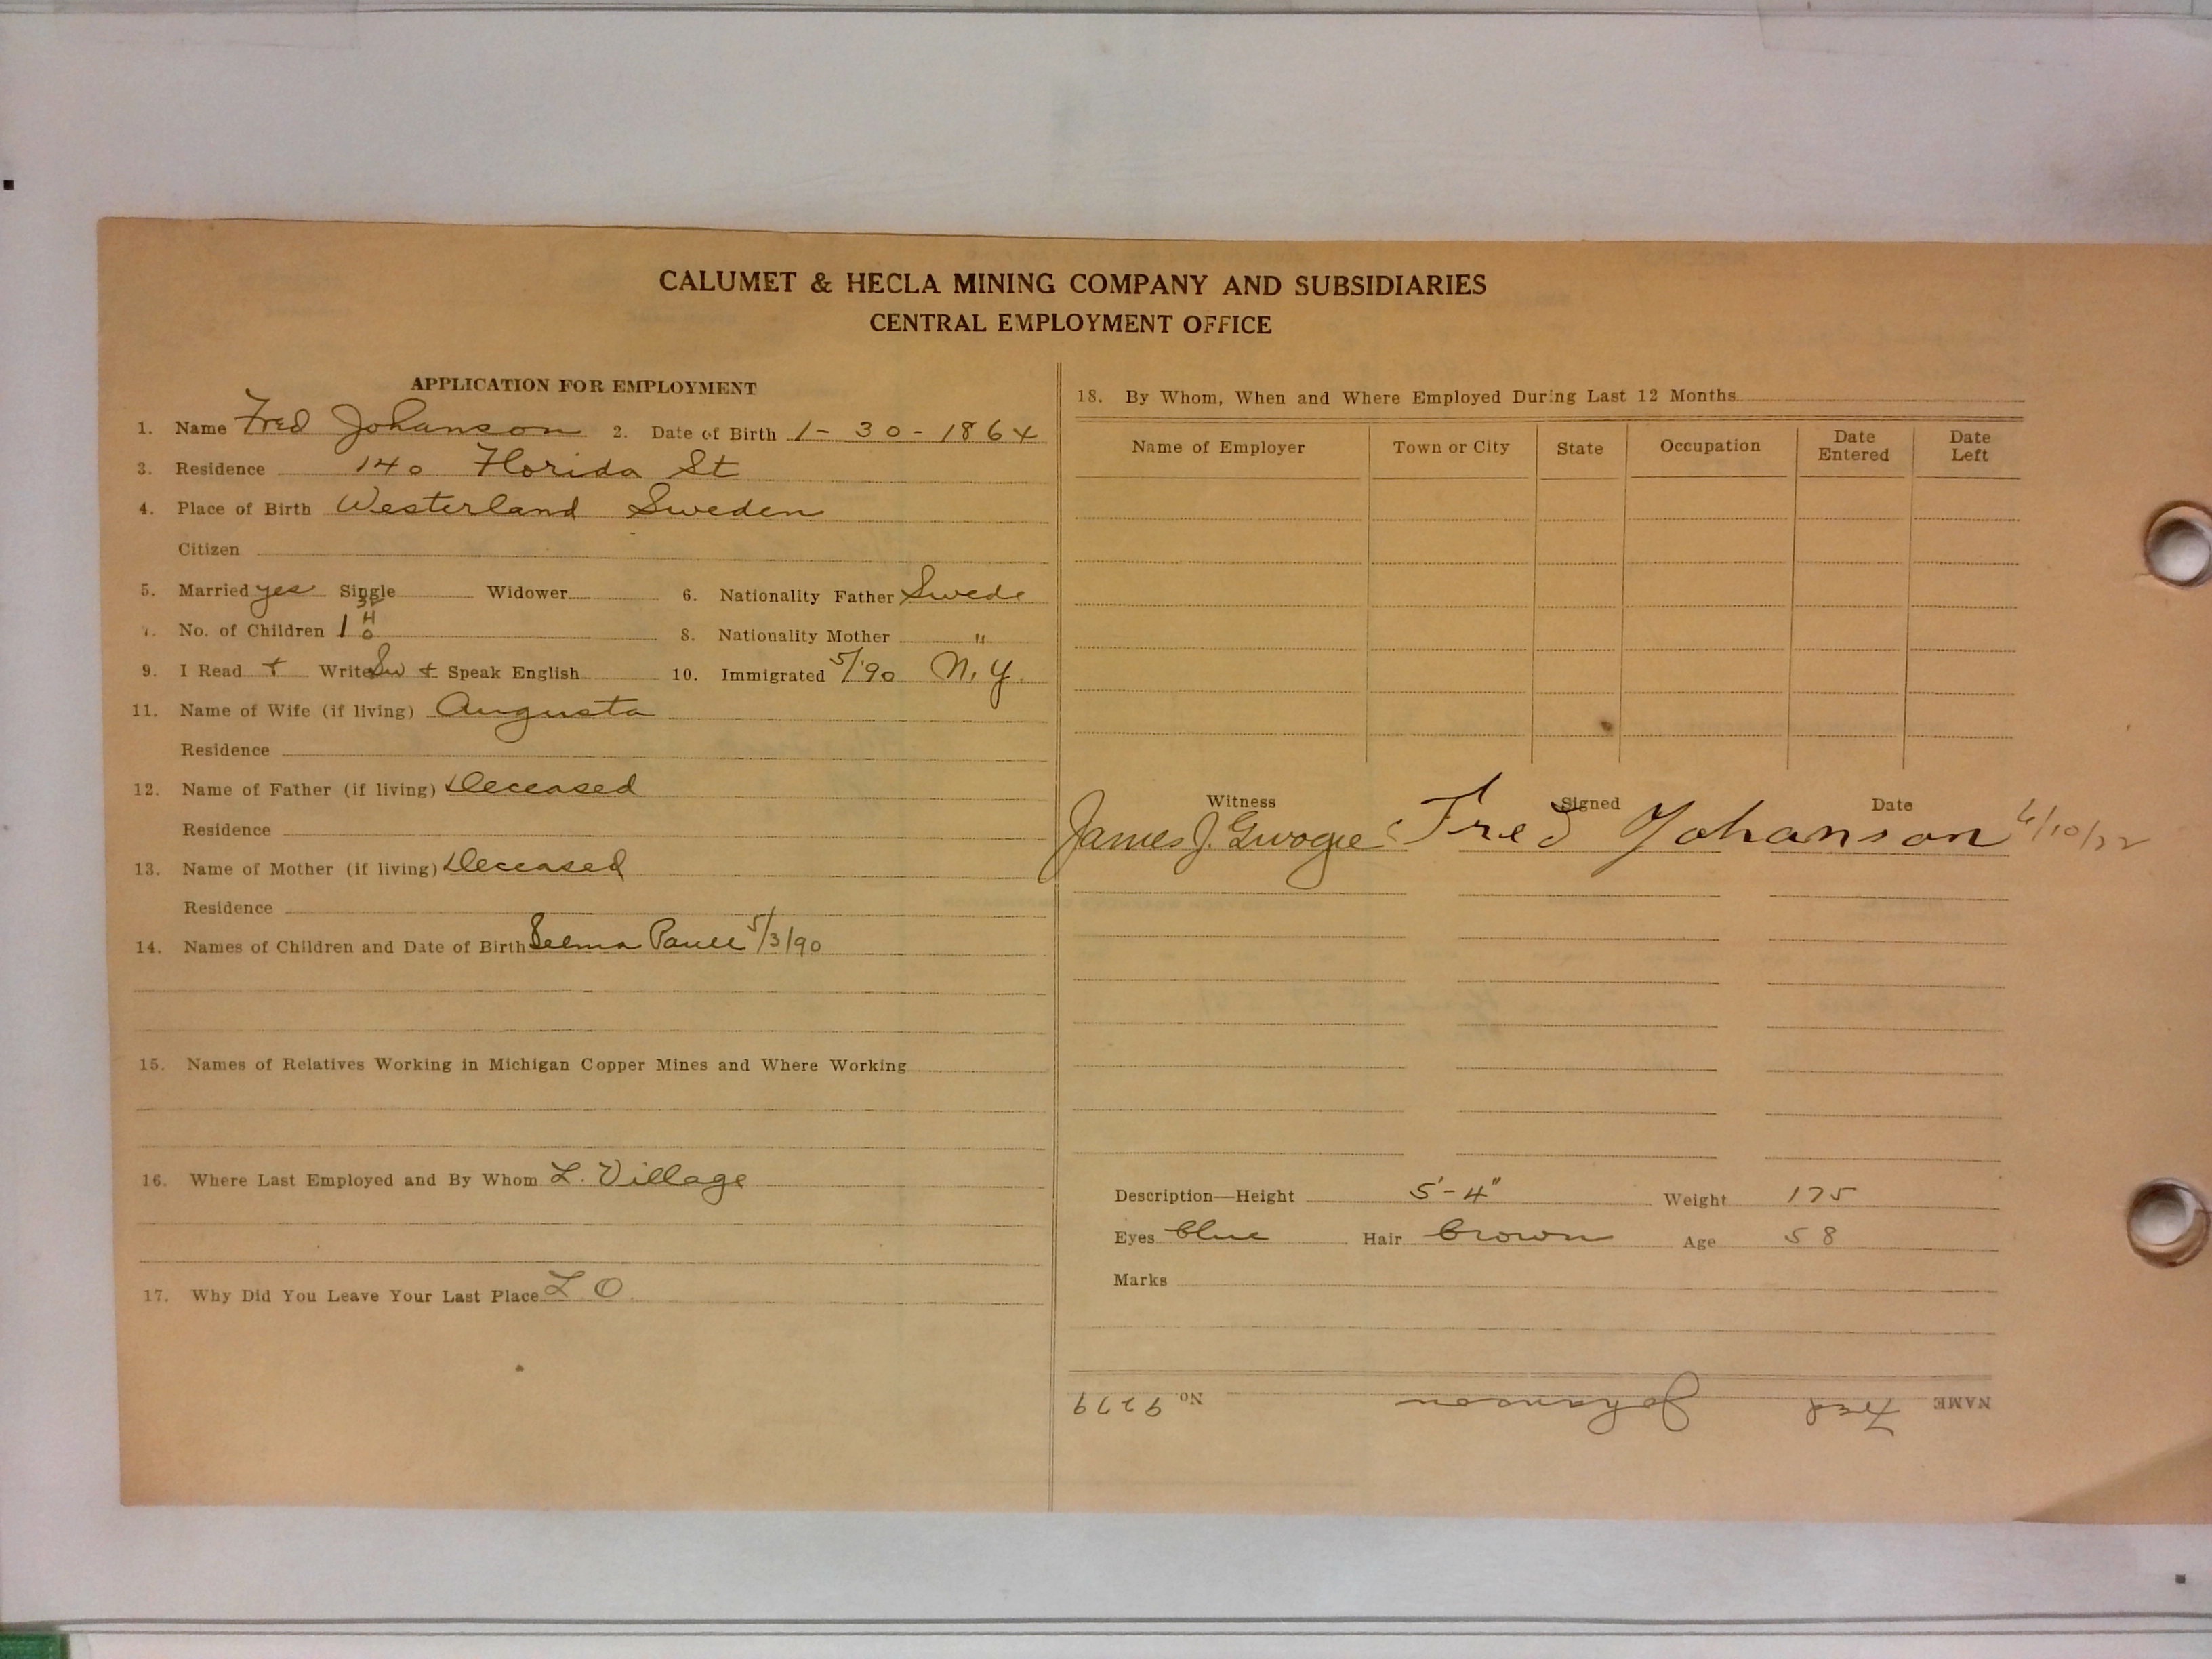 CALUMET & HECLA MINING COMPANY AND SUBSIDIARIES
CENTRAL EMPLOYMENT OFFICE
APPLICATION FOR EMPLOYMENT
1. Name Fred Johanson 2. Date of Birth 1-30-1864
3. Residence 140 Florida St
4. Place of Birth Westerland Sweden
Citizen
5. Married yes Single Widower 6. Nationality Father Swede
7. No. of Children 1 8. Nationality Mother "
9. I Read + Write Sw + Speak English 10. Immigrated 5/90 N.Y.
11. Name of Wife (if living) Augusta
Residence
12. Name of Father (if living) Deceased
Residence
13. Name of Mother (if living) Deceased
Residence
14. Names of Children and Date of Birth Selma 5/3/90
15. Names of Relatives Working in Michigan Copper Mines and Where Working
16. Where Last Employed and By Whom L. Village
17. Why Did You Leave Your Last Place L O
18. By Whom, When and Where Employed During Last 12 Months
Name of Employer Town or City State Occupation Date Entered Date Left
Witness Signed Date
James J. Fred Johanson
Description—Height 5'-4" Weight 175
Eyes blue Hair brown Age 58
Marks
NAME Fred Johanson No. 9279